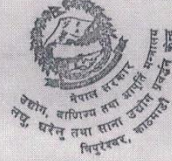 नेपाल सरकार
उद्योग, वाणिज्य तथा आपूर्ति मन्त्रालय
लघु, घरेलु तथा साना उद्योग प्रवर्द्धन केन्द्र
त्रिपुरेश्वर, काठमाडौं